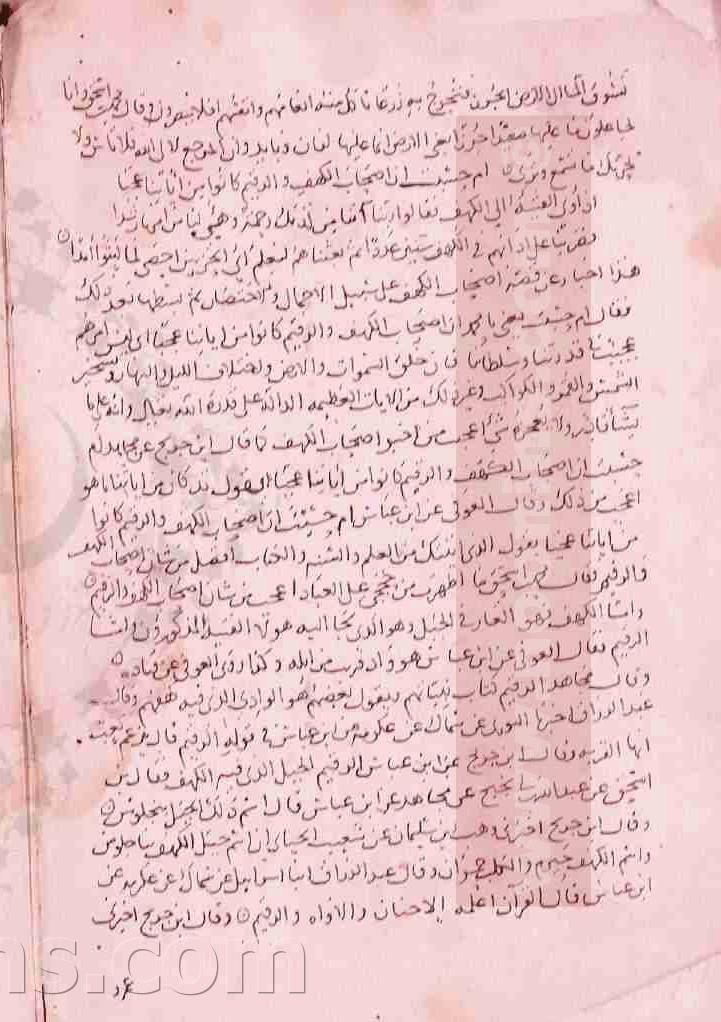 نسوق الماء الى الارض الجرز فنخرج به زرعا تأكل منه انعامهم وانفسهم افلا يبصرون وقال محمد بن اسحق وانا
لجاعلون ما عليها صعيدا جرزا يعني الارض ان ما عليها لفان وبايد وان المرجع لالى الله فلا تاس ولا
يحزنك ما تسمع وترى ام حسبت ان اصحاب الكهف والرقيم كانوا من اياتنا عجبا
اذ اوى الفتية الى الكهف فقالوا ربنا آتنا من لدنك رحمة وهيئ لنا من امرنا رشدا
فضربنا على اذانهم في الكهف سنين عددا ثم بعثناهم لنعلم اي الحزبين احصى لما لبثوا أمدا
هذا اخبار عن قصة اصحاب الكهف على سبيل الاجمال والاختصار ثم بسطها بعد ذلك
فقال ام حسبت يعني يا محمد ان اصحاب الكهف والرقيم كانوا من اياتنا عجبا اي ليس امرهم
عجيبا في قدرتنا وسلطاننا فان خلق السموات والارض واختلاف الليل والنهار وتسخير
الشمس والقمر والكواكب وغير ذلك من الايات العظيمة الدالة على قدرة الله تعالى وانه على ما
يشأ قادر ولا يعجزه شئ اعجب من اخبر اصحاب الكهف كما قال ابن جريج عن مجاهد ام
حسبت ان اصحاب الكهف والرقيم كانوا من اياتنا عجبا يقول قد كان من اياتنا ما هو
اعجب من ذلك وقال العوفي عن ابن عباس ام حسبت ان اصحاب الكهف والرقيم كانوا
من اياتنا عجبا يقول الذي اتيتك من العلم والسنة والكتاب افضل من شان اصحاب الكهف
والرقيم وقال محمد بن اسحق ما اظهرت من حججي على العباد اعجب من شان اصحاب الكهف والرقيم
واما الكهف فهو الغار في الجبل وهو الذي لجا اليه هولا الفتية المذكورون واما
الرقيم فقال العوفي عن ابن عباس هو واد قريب من ايلة وكذا روى العوفي عن قتاده
وقال مجاهد الرقيم كتاب بنيانهم ويقول بعضهم هو الوادي الذي فيه كهفهم وقال
عبد الرزاق اخبرنا الثوري عن سماك عن عكرمة عن ابن عباس في قوله الرقيم قال يزعم كعب
انها القرية وقال ابن جريج عن ابن عباس الرقيم الجبل الذي فيه الكهف وقال ابن
اسحق عن عبد الله بن ابي نجيح عن مجاهد عن ابن عباس قال اسم ذلك الجبل بنجلوس
وقال ابن جريج اخبرني وهب بن سليمان عن شعيب الجبائي ان اسم جبل الكهف بناجلوس
واسم الكهف حيزم والكلب حمران وقال عبد الرزاق انبا اسرائيل عن سماك عن عكرمة عن
ابن عباس قال القرآن اعلمه الا حنان والاواه والرقيم وقال ابن جريج اخبرني
ns.com